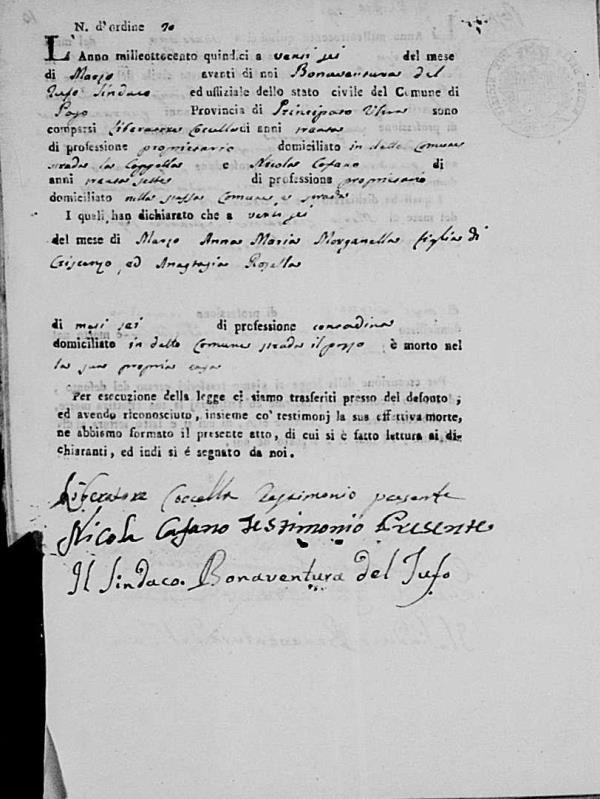 N. d'ordine 70
L'Anno milleottocento quindici a venti sei del mese
di Marzo avanti di noi Bonaventura del
Tufo Sindaco ed uffiziale dello stato civile del Comune di
Provincia di Principato Ultra sono
comparsi Liberatore Coccella di anni trenta
di professione proprietario domiciliato in detto Comune
strada la Cappella e Nicola Cafano di
anni trenta sette di professione proprietario
domiciliato nella stessa Comune e strada
I quali han dichiarato che a venti sei
del mese di Marzo Anna Maria Morganella figlia di
Criscenzo ed Anastasia Rosella
di mesi sei di professione contadina
domiciliato in detto Comune strada il pozzo è morto nel
la sua propria casa
Per esecuzione della legge ci siamo trasferiti presso del defonto;
ed avendo riconosciuto, insieme co' testimonj la sua effettiva morte,
ne abbiamo formato il presente atto, di cui si è fatto lettura ai di-
chiaranti, ed indi si é segnato da noi.
Liberatore Coccella testimonio presente
Nicola Cafano Testimonio Presente
Il Sindaco Bonaventura del Tufo